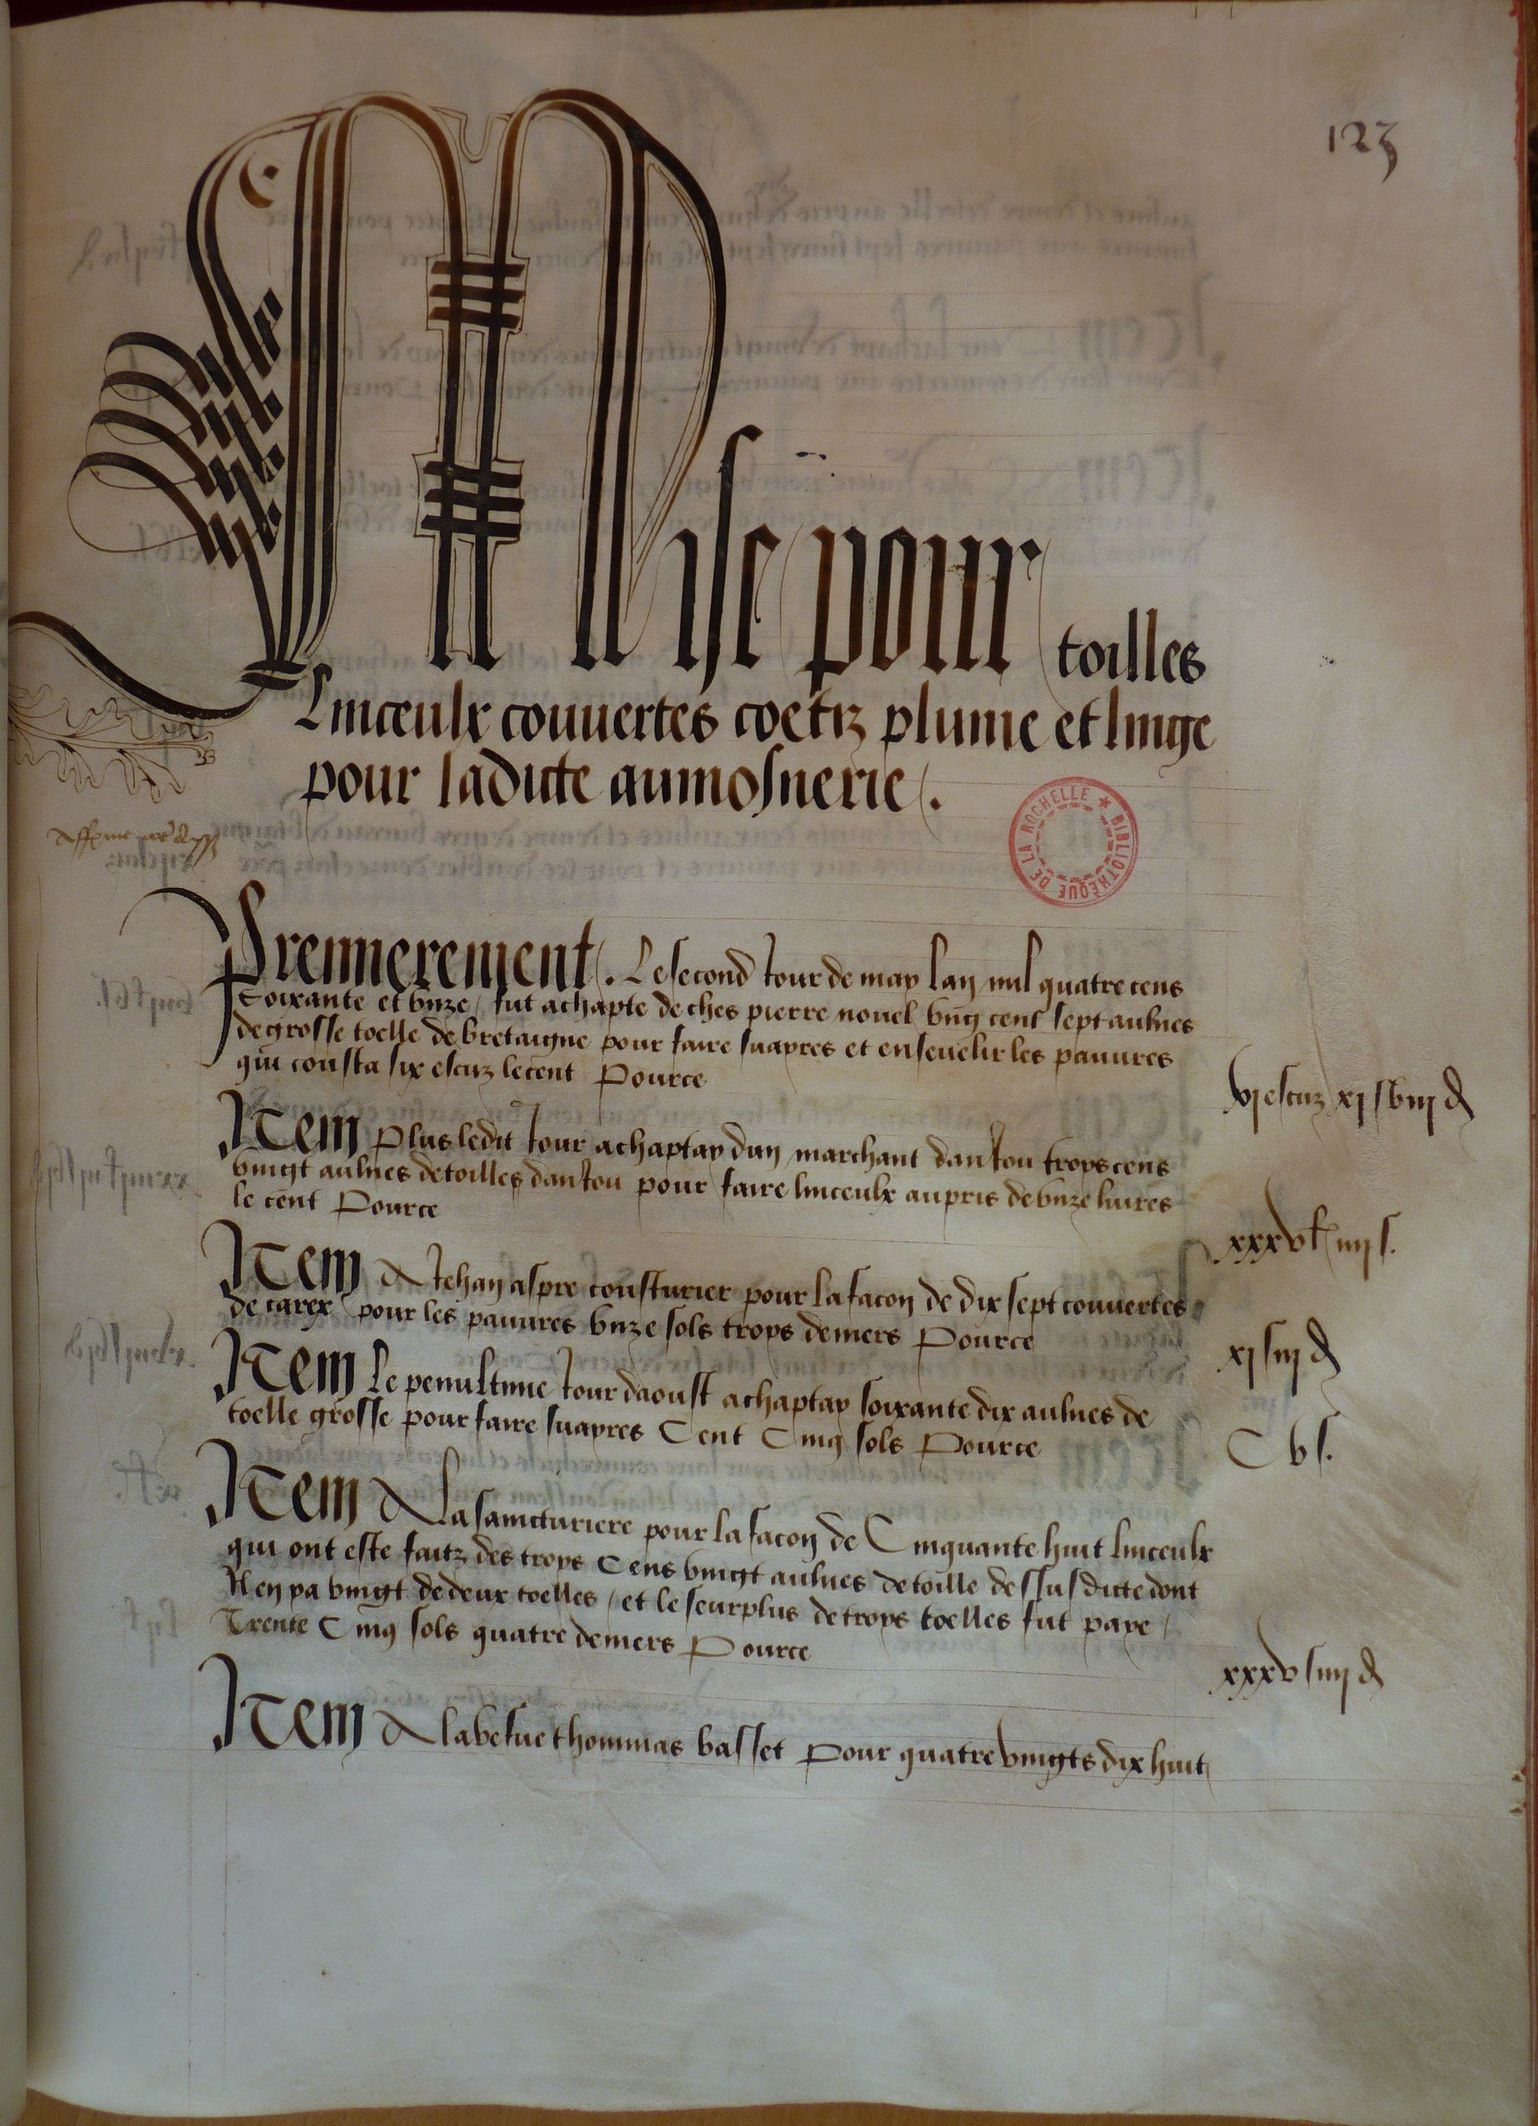 123
Mise pour toilles
Linceulx couvertes coetiz plume et linge
pour ladicte aumosnerie.
BIBLIOTHÈQUE DE LA ROCHELLE
Premierement. Le second Jour de may lan mil quatre cens
Soixante et unze / fut achapte de ches pierre nouel ung cent sept aulnes
de grosse toelle de bretaigne pour faire suayres et ensevelir les pauvres
qui cousta six escuz le cent Pource
vj escuz xj s viij d
Item Plus ledit Jour achaptay dun marchant danJou troys cens
vingt aulnes de toilles danJou pour faire linceulx au pris de unze livres
le cent Pource
xxxv l iiij s.
Item A Jehan aspre cousturier pour la facon de dix sept couvertes
de carex / pour les pauvres unze sols troys deniers Pource
xj s iij d
Item Le penultime Jour daoust achaptay soixante dix aulnes de
toelle grosse pour faire suayres Cent Cinq sols Pource
C v s.
Item A La saincturiere pour la facon de Cinquante huit linceulx
qui ont este faitz des troys Cens vingt aulnes de toille dessusdicte dont
Il en ya vingt de deux toelles / et le seurplus de troys toelles fut paye /
Trente Cinq sols quatre deniers Pource
xxxv s iiij d
Item A la vefue thommas basset pour quatre vingts dix huit